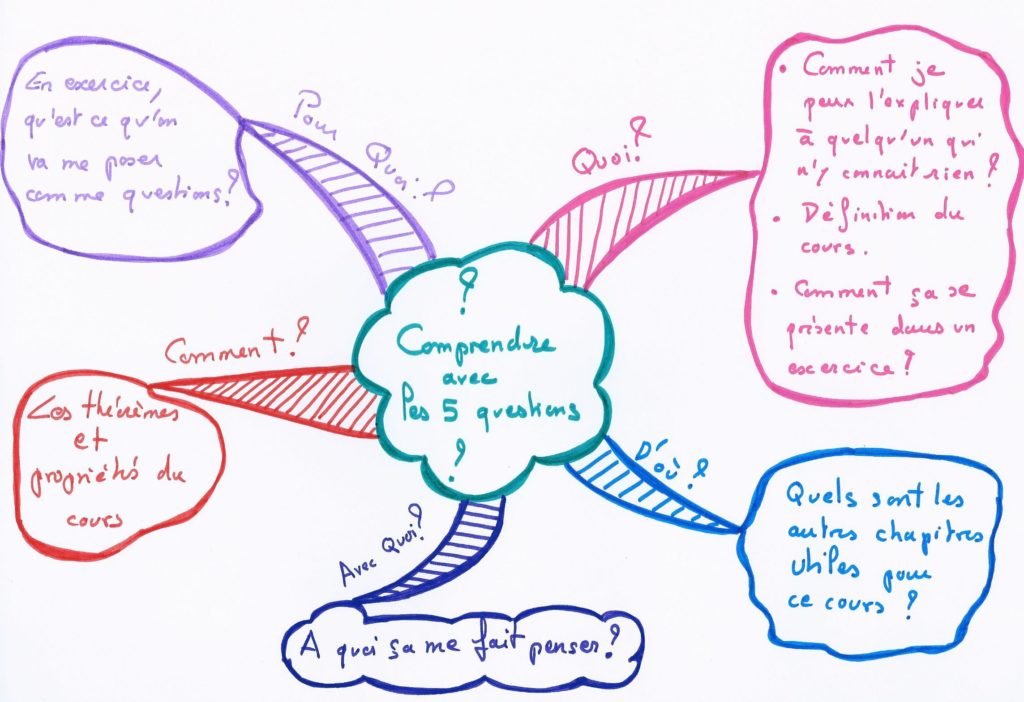 ?
Comprendre
avec
les 5 questions
?
Quoi?
• Comment je
peux l'expliquer
à quelqu'un qui
n'y connait rien?
• Définition du
cours.
• Comment ça se
présente dans un
exercice?
D'où?
Quels sont les
autres chapitres
utiles pour
ce cours?
Avec Quoi?
A quoi ça me fait penser?
Comment?
Les théorèmes
et
propriétés du
cours
Pour
Quoi?
En exercice,
qu'est ce qu'on
va me poser
comme questions?